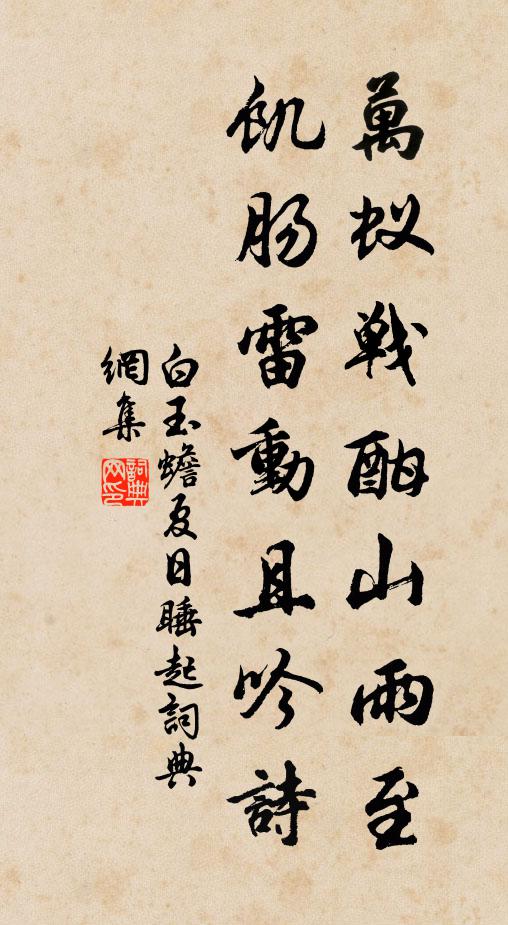 萬蚁戰酣山雨至
飢肠雷動且吟詩
白玉蟾夏日睡起詞典
網集
詞典网印